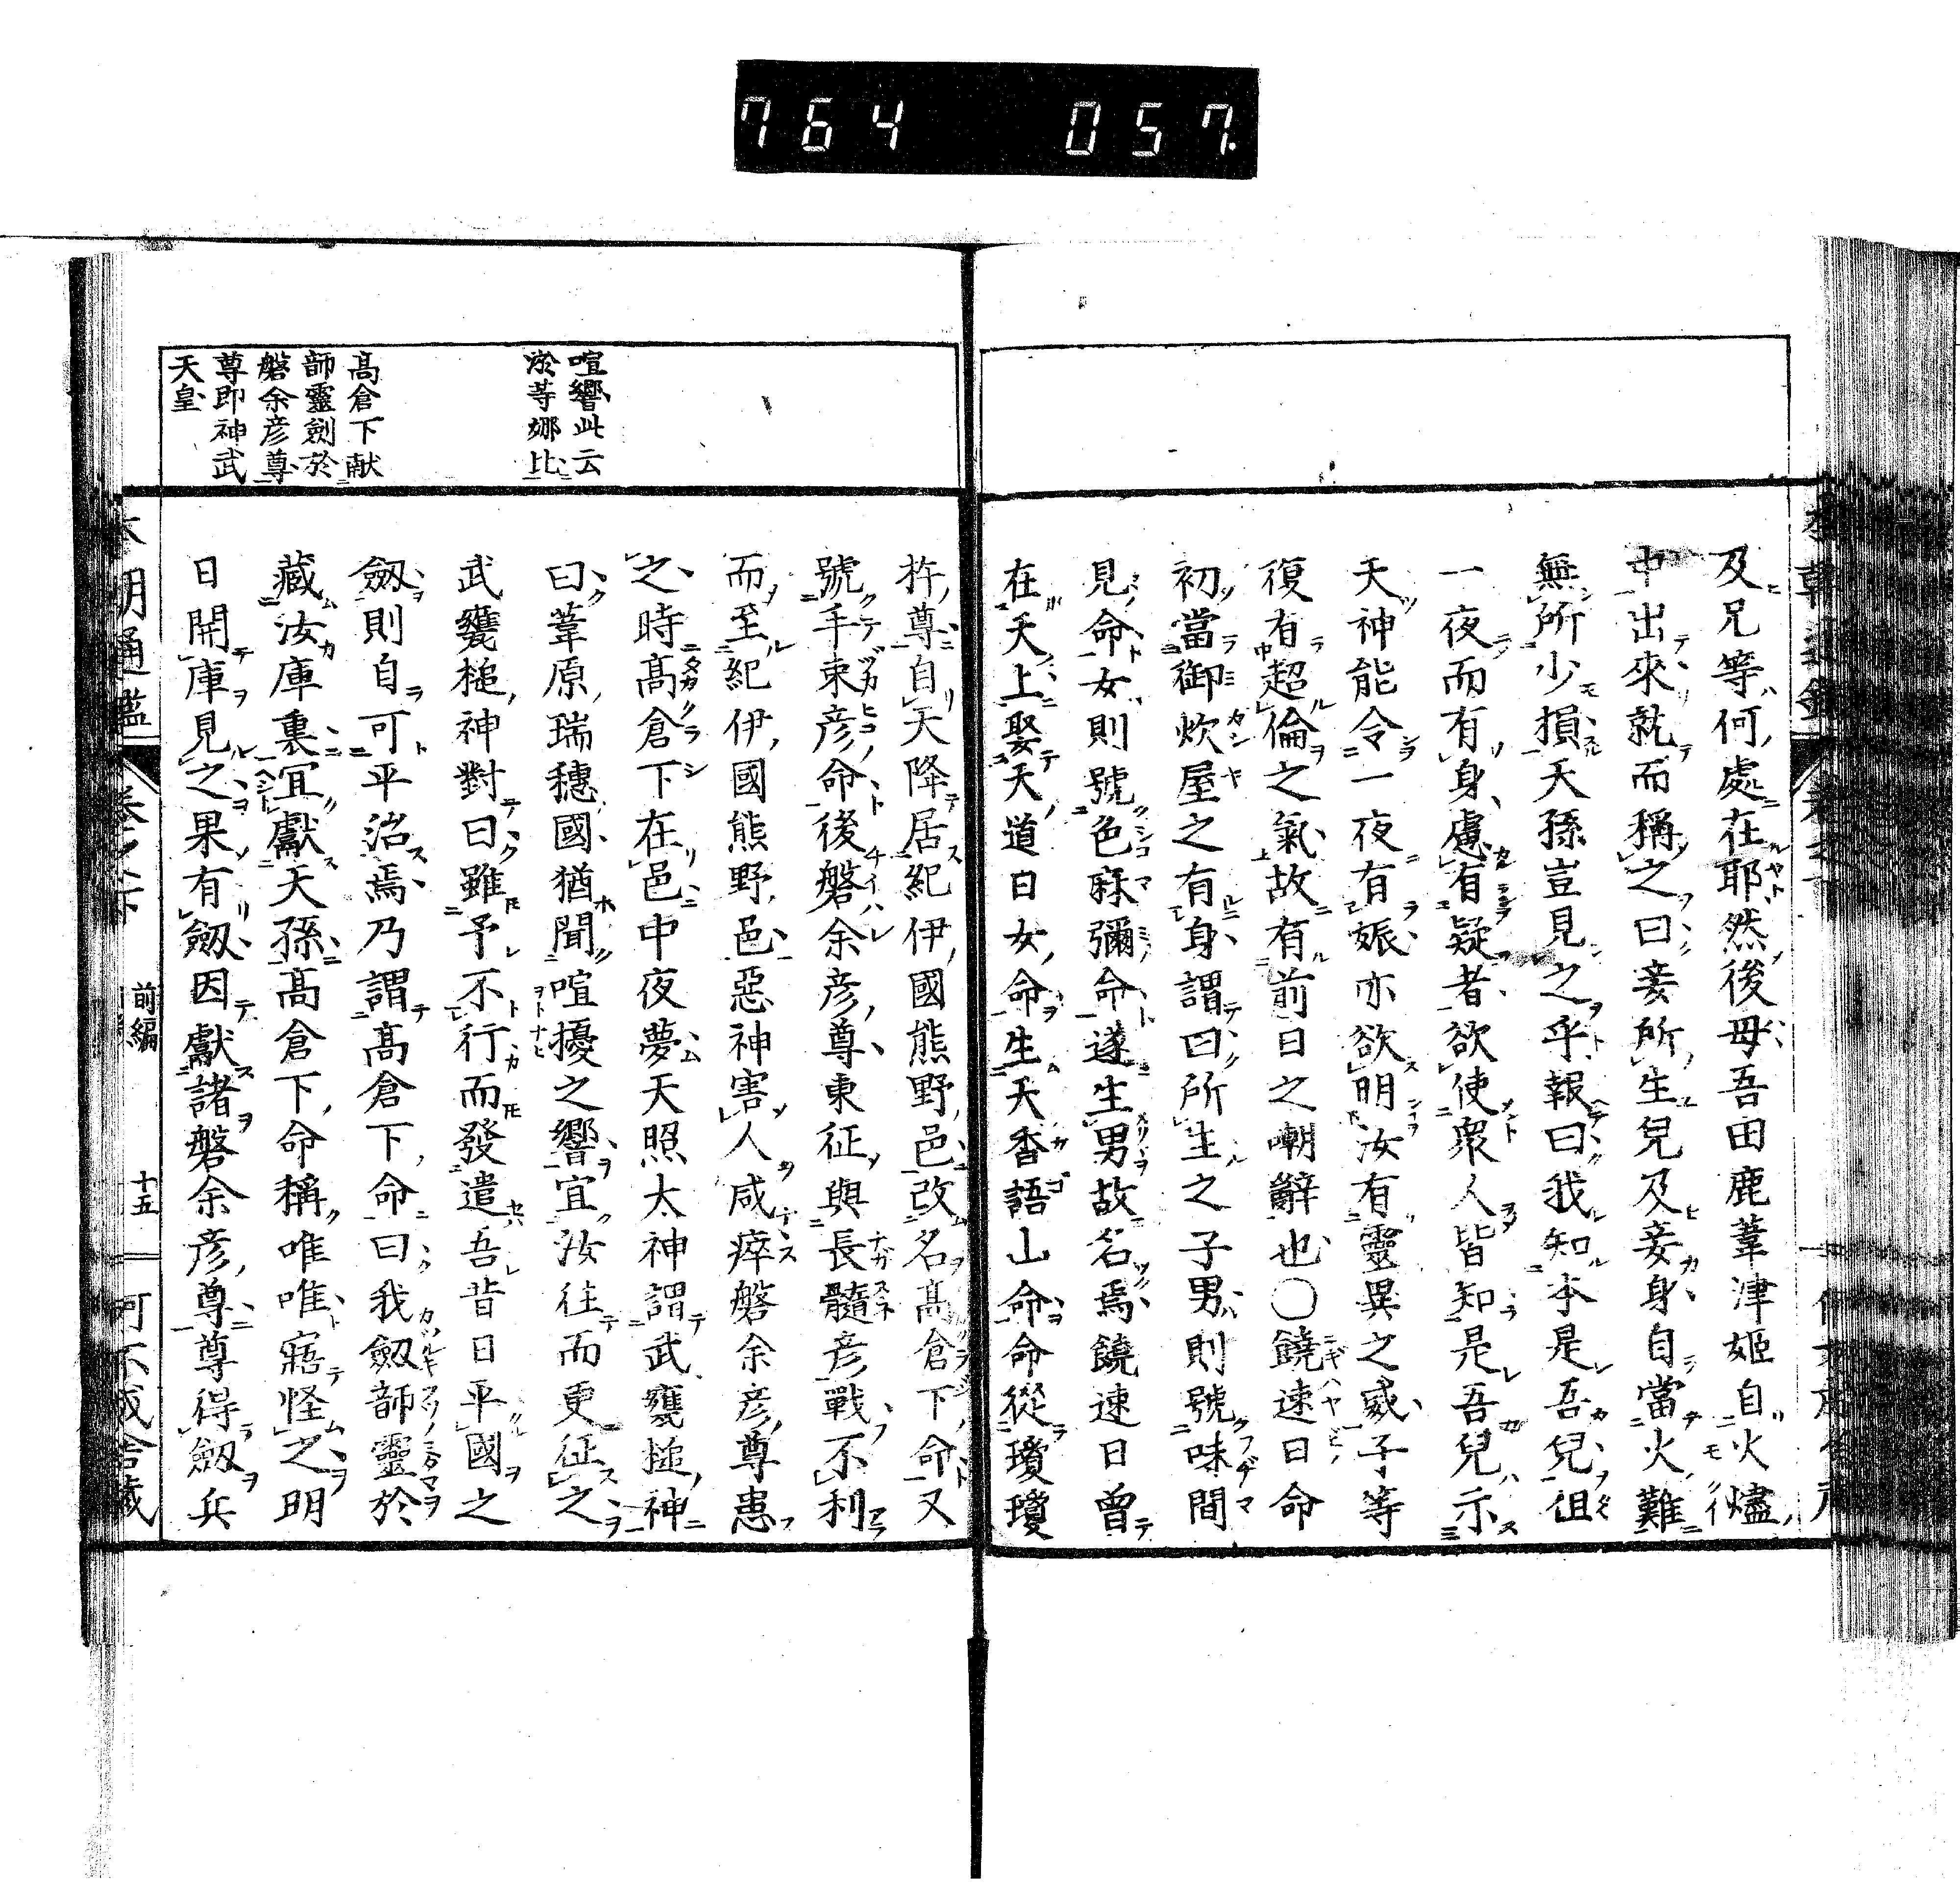 764 057
及兄等何處在耶然後母吾田鹿葦津姬自火燼
中出來就而稱之曰妾所生兒及妾身自當火難
無所少損天孫豈見之乎報曰我知本是吾兒但
一夜而有身慮有疑者欲使衆人皆知是吾兒示
天神能令一夜有娠亦欲明汝有靈異之威子等
復有超倫之氣故有前日之嘲辭也○饒速日命
初當御炊屋之有身謂曰所生之子男則號味間
見命女則號色麻彌命遂生男故名焉饒速日曾
在天上娶天道日女命生天香語山命命從瓊瓊
杵尊自天降居紀伊國熊野邑改名髙倉下命又
號手束彦命後磐余彦尊東征與長髓彦戰不利
而至紀伊國熊野邑惡神害人咸瘁磐余彦尊患
之時髙倉下在邑中夜夢天照太神謂武甕槌神
曰葦原瑞穗國猶聞喧擾之響宜汝往而更征之
武甕槌神對曰雖予不行而發遣吾昔日平國之
劔則自可平治焉乃謂髙倉下命曰我劔韴靈於
藏汝庫裏宜獻天孫髙倉下命稱唯唯寤怪之明
日開庫見之果有劔因獻諸磐余彦尊尊得劔兵
喧響此云
淤等娜比
髙倉下献
韴靈劍於
磐余彦尊
尊即神武
天皇
本朝通鑑 卷之下 前編 十五